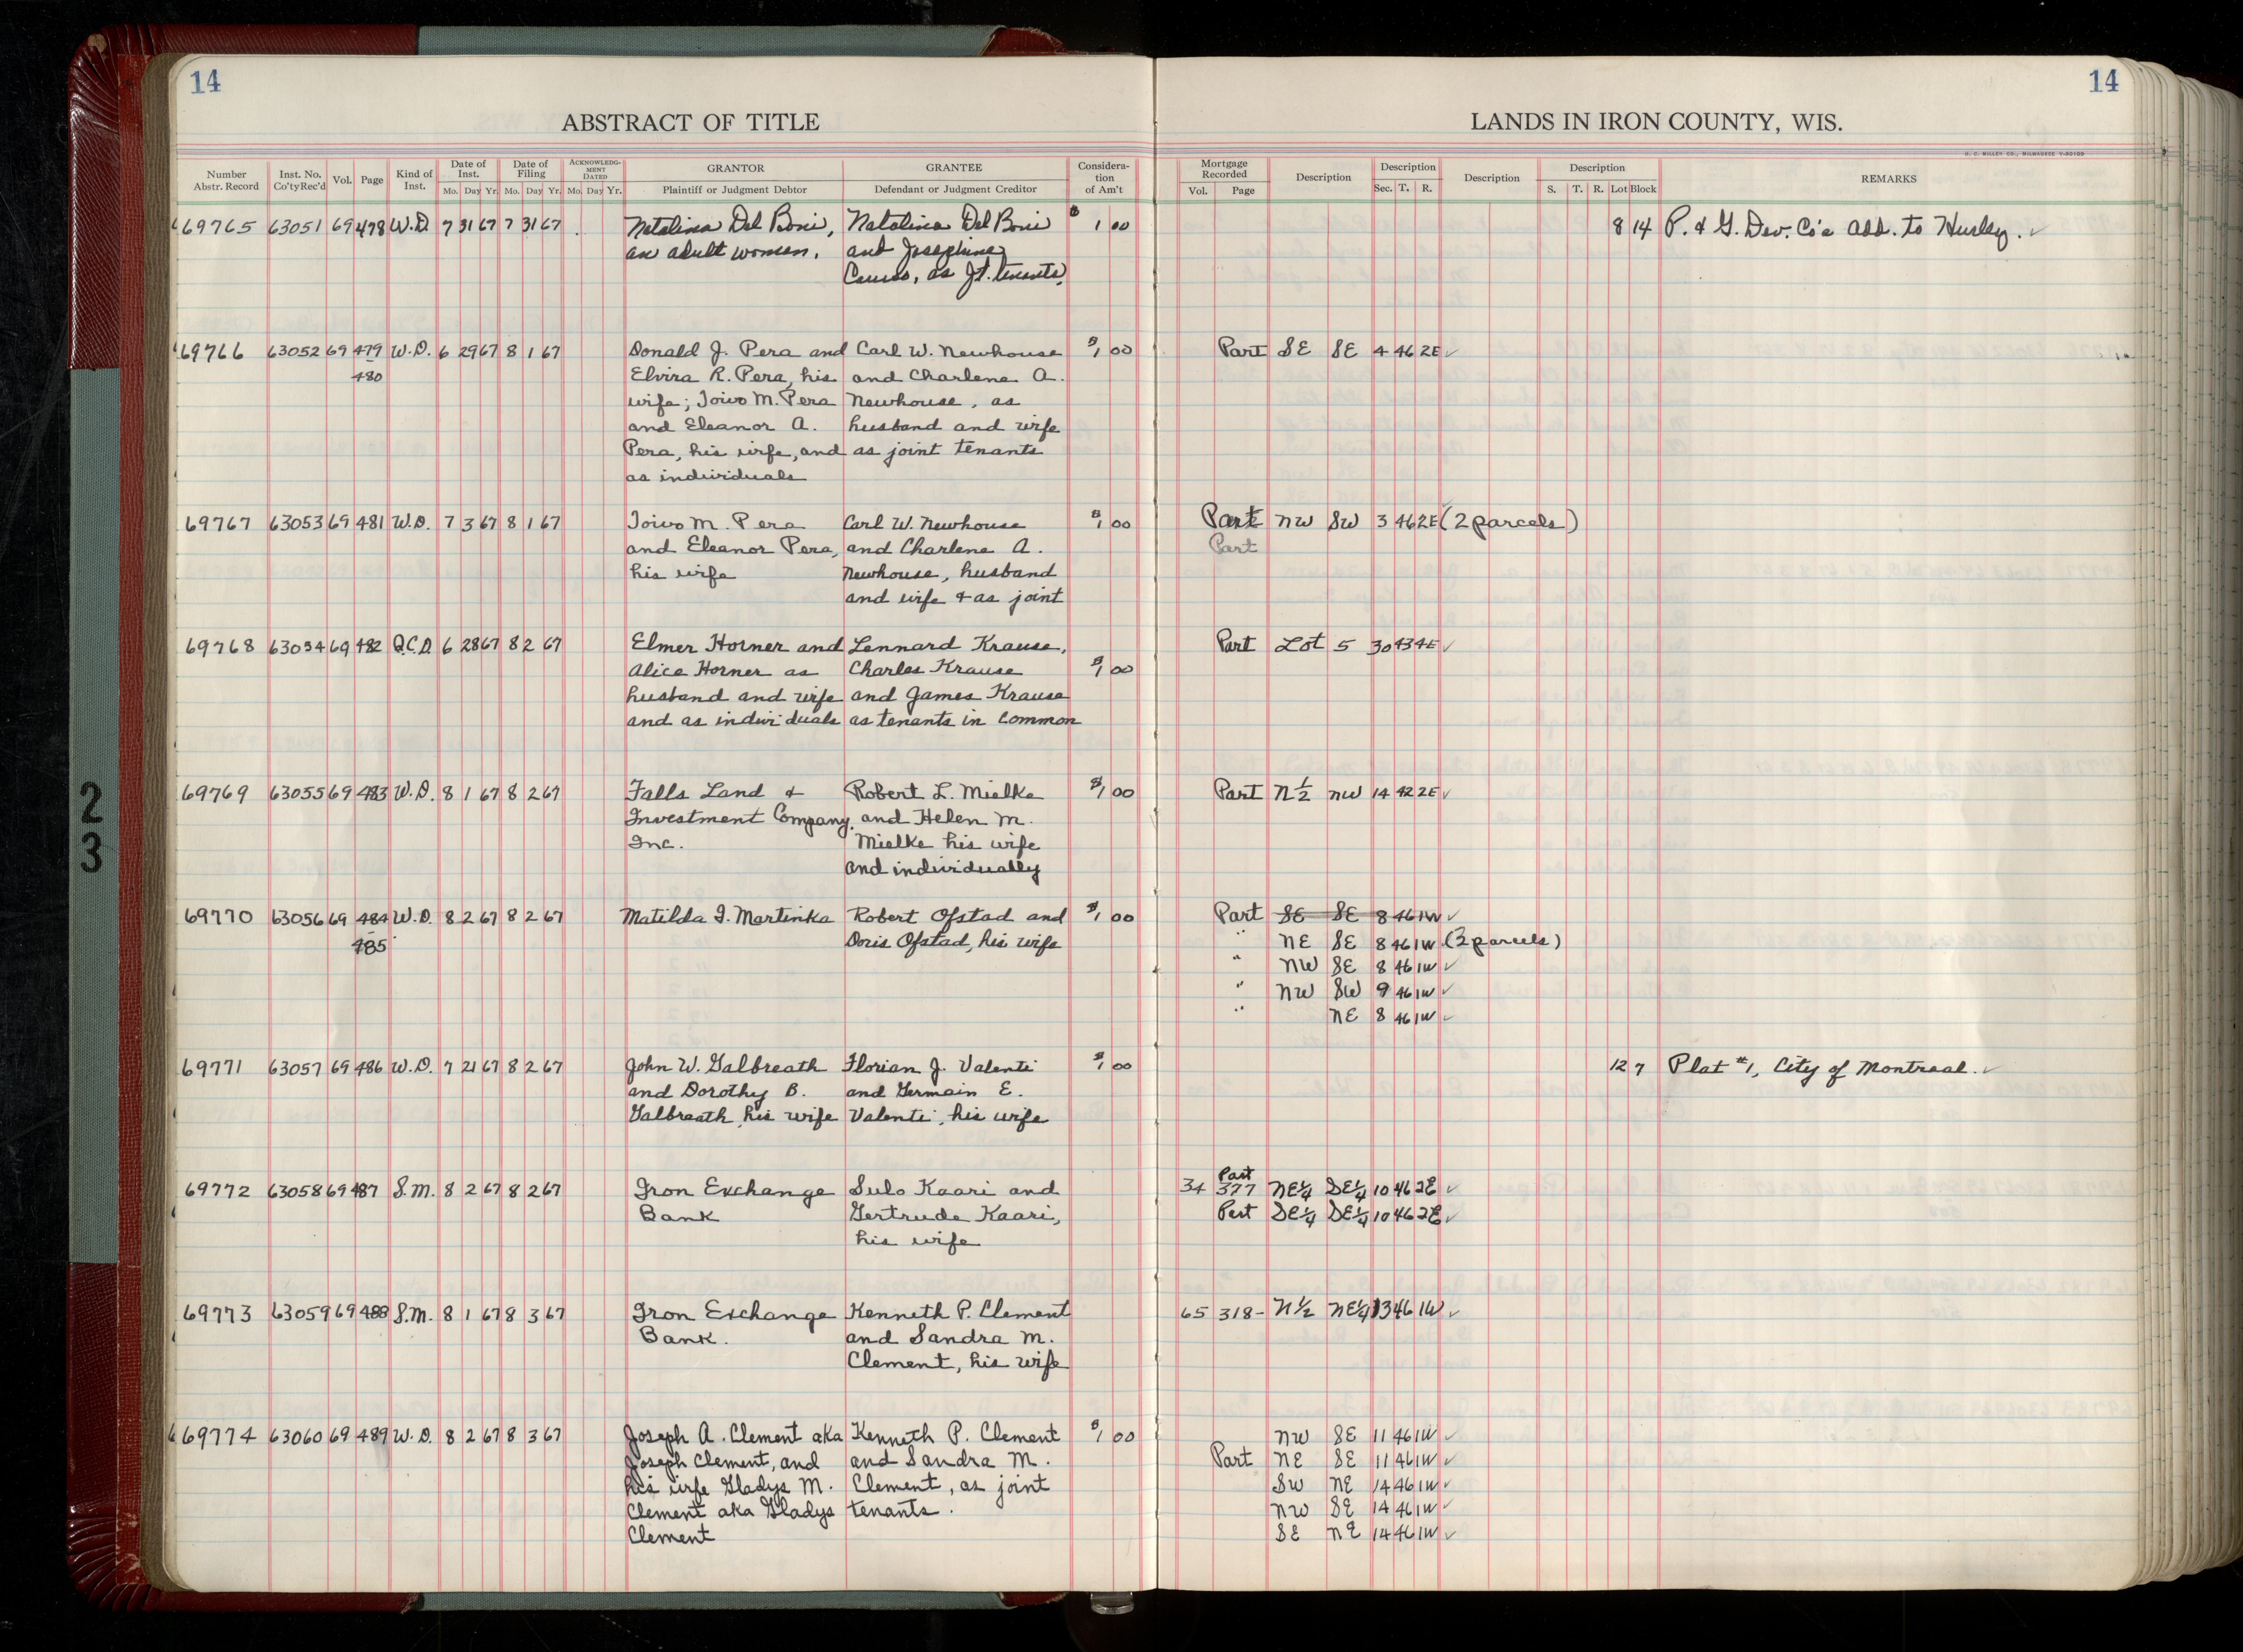 14
14
ABSTRACT OF TITLE
LANDS IN IRON COUNTY, WIS.
H. C. MILLER CO., MILWAUKEE
Number Abstr. Record Inst. No. Co'ty Rec'd Vol. Page Kind of Inst. Date of Inst. Mo. Day Yr. Date of Filing Mo. Day Yr. ACKNOWLEDGMENT DATED Mo. Day Yr. GRANTOR Plaintiff or Judgment Debtor GRANTEE Defendant or Judgment Creditor Consideration of Am't Mortgage Recorded Vol. Page Description Description Sec. T. R. Description Description S. T. R. Lot Block REMARKS
69765 63051 69 478 W.D. 7 31 67 7 31 67 Natalina Del Boni, Natalina Del Boni $1 00 8 14 P. & G. Dev. Co's Add. to Hurley. ✓
an adult woman. and Josephine
Caruso, as Jt. tenants.
69766 63052 69 479 W.D. 6 29 67 8 1 67 Donald J. Pera and Carl W. Newhouse $1 00 Part SE SE 4 46 2E ✓
480 Elvira R. Pera, his and Charlene A.
wife; Toivo M. Pera Newhouse, as
and Eleanor A. husband and wife
Pera, his wife, and as joint tenants
as individuals
69767 63053 69 481 W.D. 7 3 67 8 1 67 Toivo M. Pera Carl W. Newhouse $1 00 Part NW SW 3 46 2E (2 parcels)
and Eleanor Pera, and Charlene A. Part
his wife Newhouse, husband
and wife & as joint
69768 63054 69 482 Q.C.D. 6 28 67 8 2 67 Elmer Horner and Lennard Krause, Part Lot 5 30 43 4E ✓
Alice Horner as Charles Krause $1 00
husband and wife and James Krause
and as individuals as tenants in common
69769 63055 69 483 W.D. 8 1 67 8 2 67 Falls Land & Robert L. Mielke $1 00 Part N½ NW 14 42 2E ✓
Investment Company, and Helen M.
Inc. Mielke his wife
and individually
69770 63056 69 484 W.D. 8 2 67 8 2 67 Matilda I. Martinka Robert Ofstad and $1 00 Part SE SE 8 46 1W ✓
485 Doris Ofstad, his wife " NE SE 8 46 1W (2 parcels)
" NW SE 8 46 1W ✓
" NW SW 9 46 1W ✓
" NE 8 46 1W ✓
69771 63057 69 486 W.D. 7 21 67 8 2 67 John W. Galbreath Florian J. Valenti $1 00 12 7 Plat #1, City of Montreal. ✓
and Dorothy B. and Germain E.
Galbreath, his wife Valenti, his wife
Part
69772 63058 69 487 S.M. 8 2 67 8 2 67 Iron Exchange Sulo Kaari and 34 377 NE¼ SE¼ 10 46 2E ✓
Bank Gertrude Kaari, Part SE¼ SE¼ 10 46 2E ✓
his wife
69773 63059 69 488 S.M. 8 1 67 8 3 67 Iron Exchange Kenneth P. Clement 65 318- N½ NE¼ 13 46 1W ✓
Bank. and Sandra M.
Clement, his wife
69774 63060 69 489 W.D. 8 2 67 8 3 67 Joseph A. Clement aka Kenneth P. Clement $1 00 NW SE 11 46 1W ✓
Joseph Clement, and and Sandra M. Part NE SE 11 46 1W ✓
his wife Gladys M. Clement, as joint SW NE 14 46 1W ✓
Clement aka Gladys tenants. NW SE 14 46 1W ✓
Clement SE NE 14 46 1W ✓
2
3